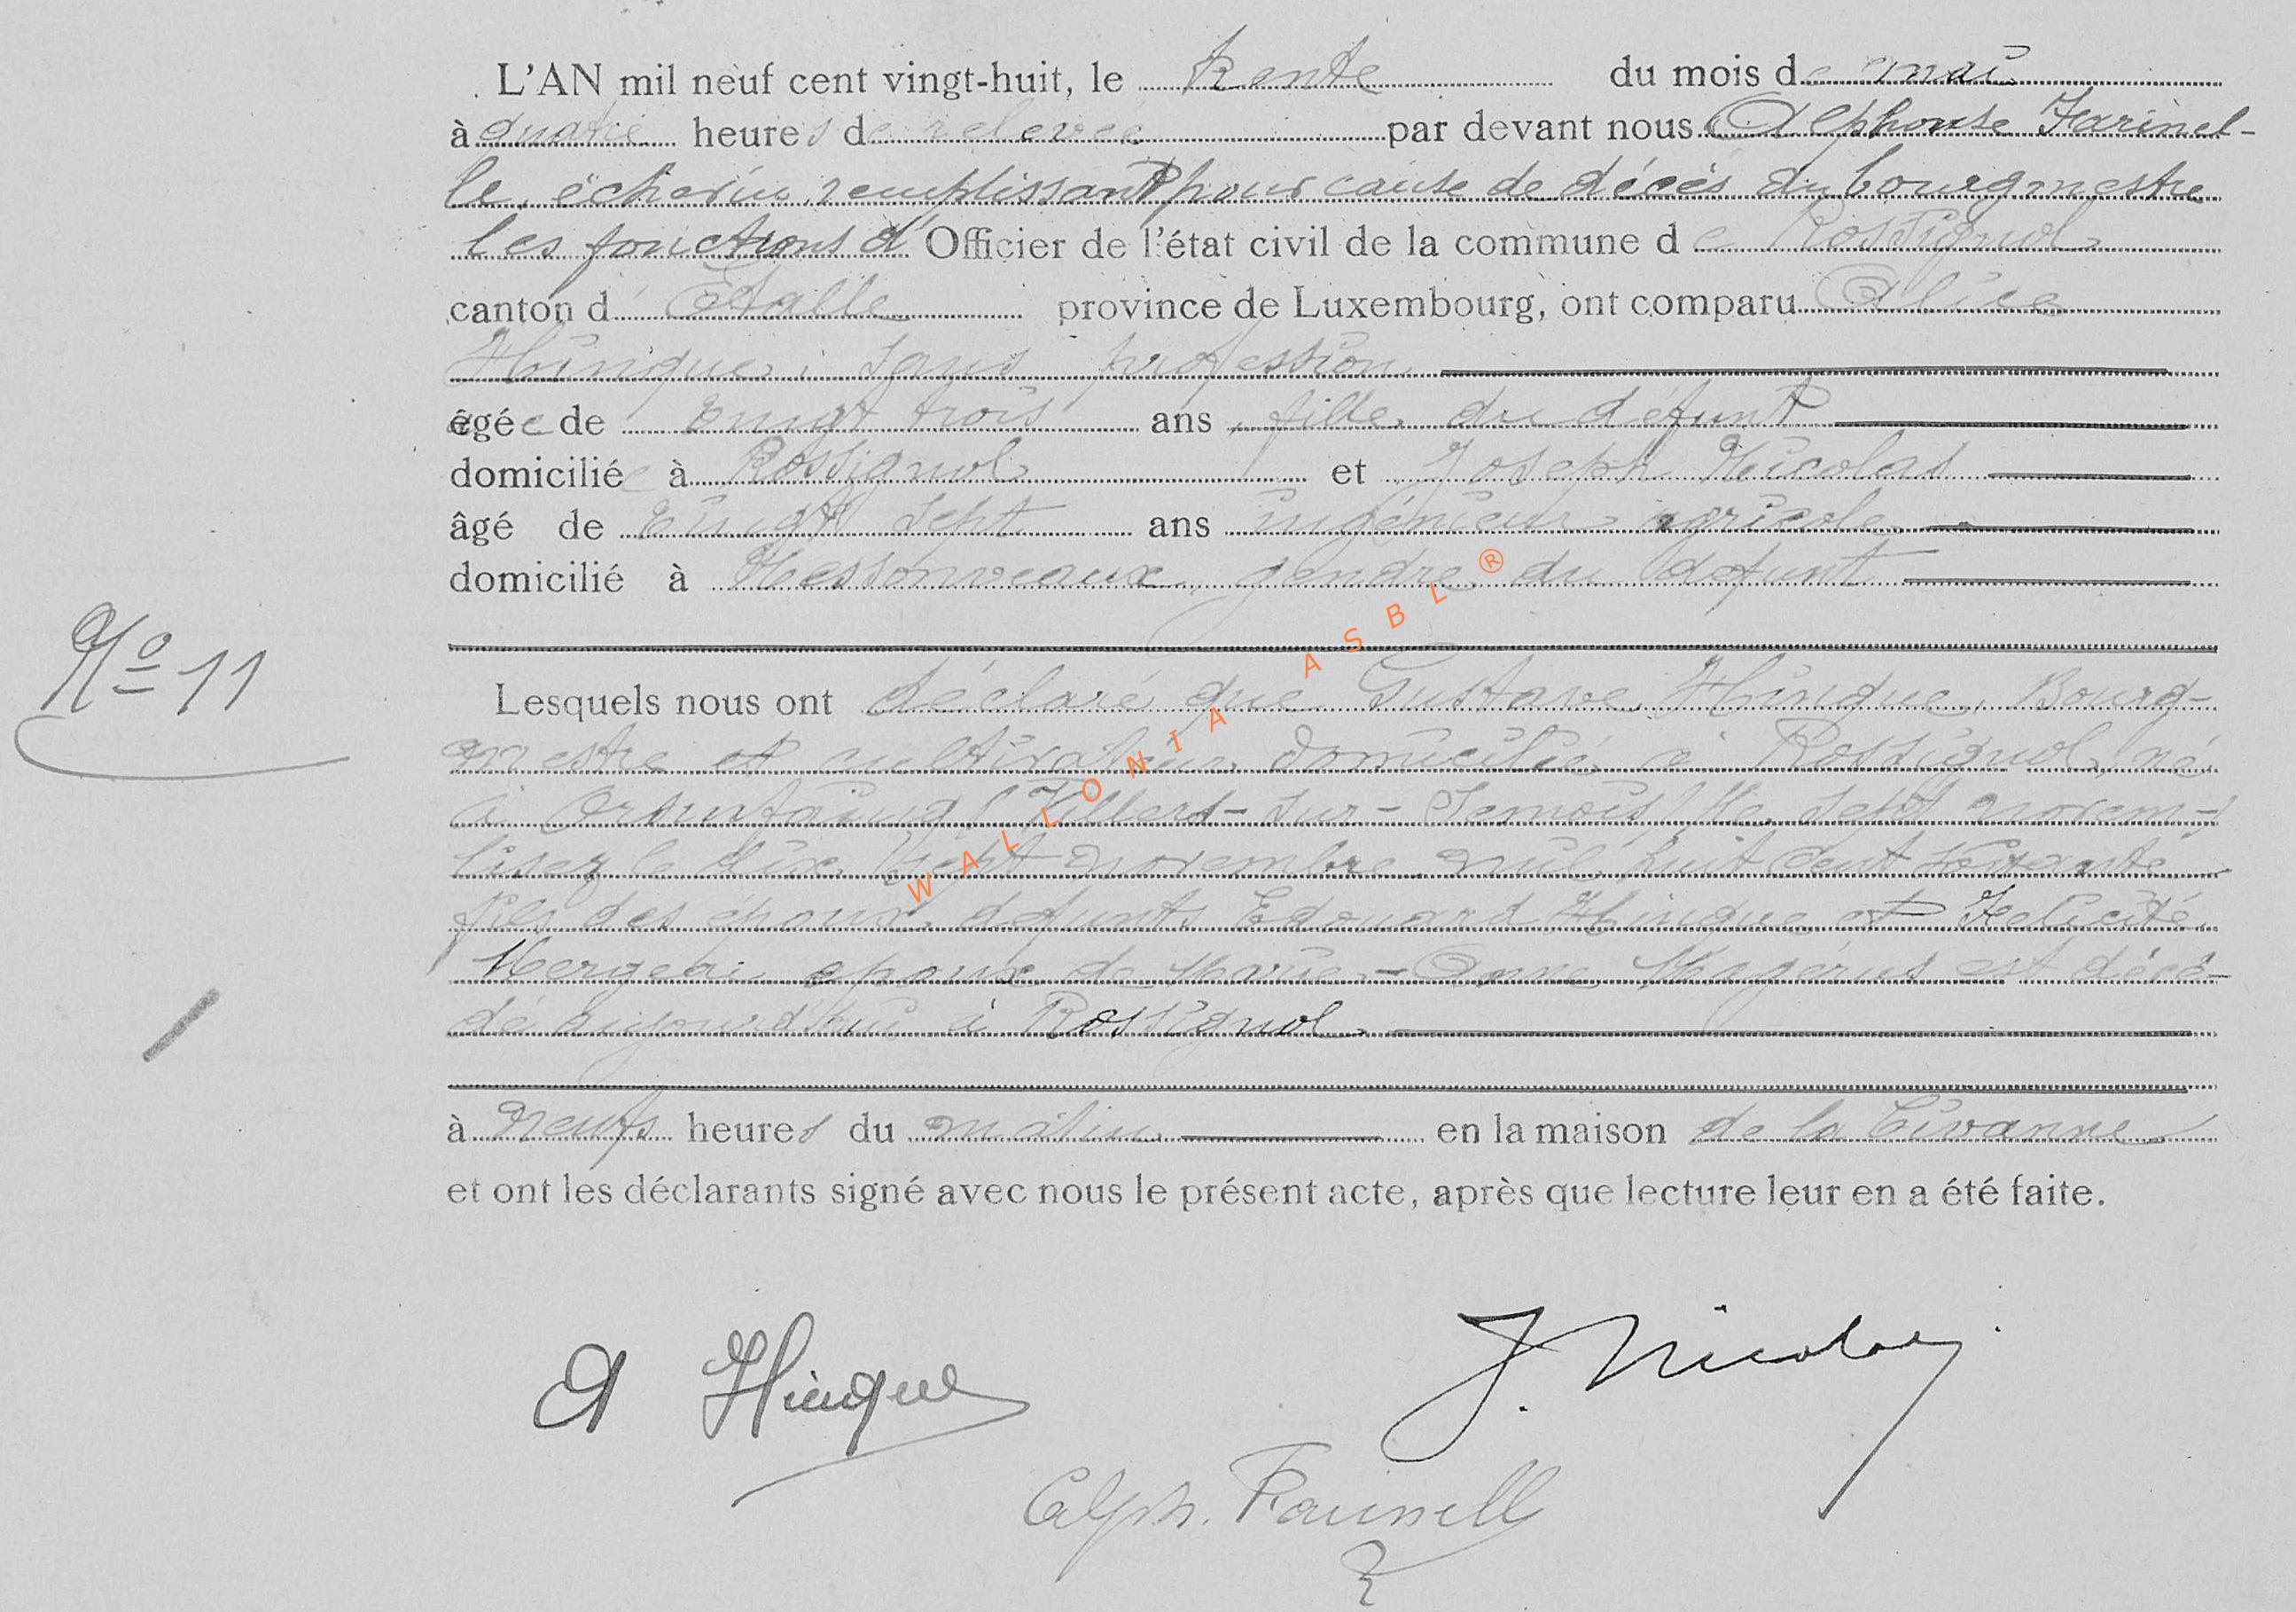 L'AN mil neuf cent vingt-huit, le trente du mois de mai
à quatre heures de relevée par devant nous Alphonse Farinel-
le, échevin, remplissant pour cause de décès du bourgmestre
les fonctions d' Officier de l'état civil de la commune de Rossignol
canton d' Etalle province de Luxembourg, ont comparu Alice
Hinque, sans profession
âgée de vingt trois ans, fille du défunt
domiciliée à Rossignol et Joseph Nicolas
âgé de vingt sept ans ingénieur agricole
domicilié à gendre du défunt
Nº 11
Lesquels nous ont déclaré que Gustave Hinque, Bourg-
mestre et cultivateur domicilié à Rossignol, né
à (Villers-sur-Semois) le sept novem-
lisez le dix sept novembre mil huit cent soixante
fils des époux défunts Edouard Hinque et Felicité
époux de Marie-Anne Magérus est décé-
dé aujourd'hui à Rossignol
à neufs heures du matin en la maison de la Civanne
et ont les déclarants signé avec nous le présent acte, après que lecture leur en a été faite.
A Hinque
J. Nicolas
Alph. Farinell
WALLONIA ASBL ®